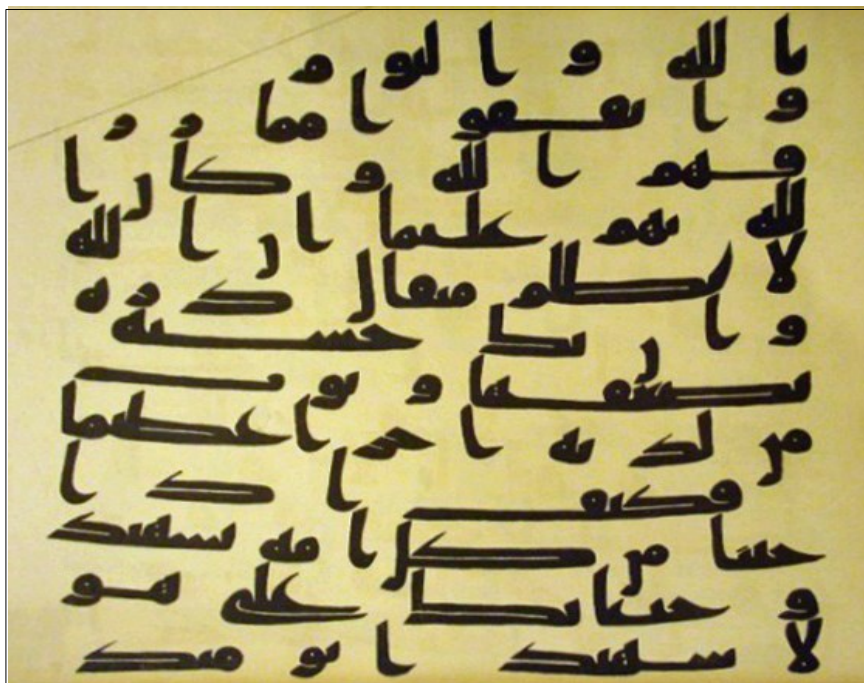 بالله و اليوم
و انفقوا مما رز
قهم الله و كان ا
لله بهم عليما ان الله
لا يظلم مثقال ذرة
و ان تك حسنة
يضعفها و يوت
من لدنه اجرا عظيما
فكيف اذا
جئنا من كل امة بشهيد
و جئنا بك على هو
لا شهيدا يومئذ